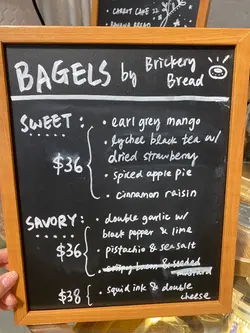 CARROT CAKE 22
BANANA BREAD
BAGELS by Brickery
Bread
SWEET: • earl grey mango
• lychee black tea w/
dried strawberry
$36
• spiced apple pie
• cinnamon raisin
SAVORY: • double garlic w/
black pepper & lime
$36 • pistachio & sea salt
• crispy bacon & seeded
mustard
$38 { • squid ink & double
cheese